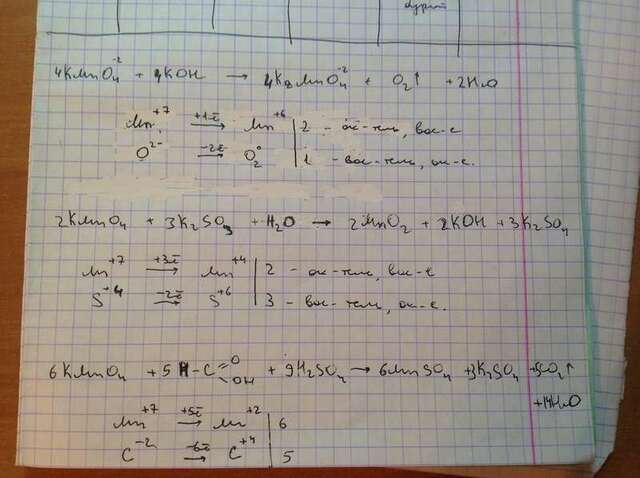 бурый
4KMnO₄⁻² + 4KOH → 4K₂MnO₄⁻² + O₂↑ + 2H₂O
Mn⁺⁷ +1ē → Mn⁺⁶ | 2 - ок-тель, вос-е
O²⁻ -2ē → O₂⁰ | 1 - вос-тель, ок-е.
2KMnO₄ + 3K₂SO₃ + H₂O → 2MnO₂ + 2KOH + 3K₂SO₄
Mn⁺⁷ +3ē → Mn⁺⁴ | 2 - ок-тель, вос-е
S⁺⁴ -2ē → S⁺⁶ | 3 - вос-тель, ок-е.
6KMnO₄ + 5H-C=O OH + 9H₂SO₄ → 6MnSO₄ + 3K₂SO₄ + 5CO₂↑
+14H₂O
Mn⁺⁷ +5ē → Mn⁺² | 6
C⁻² -6ē → C⁺⁴ | 5